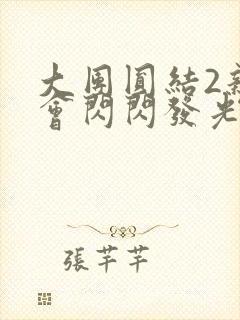 大團圓結2新
會閃閃發光
張芊芊